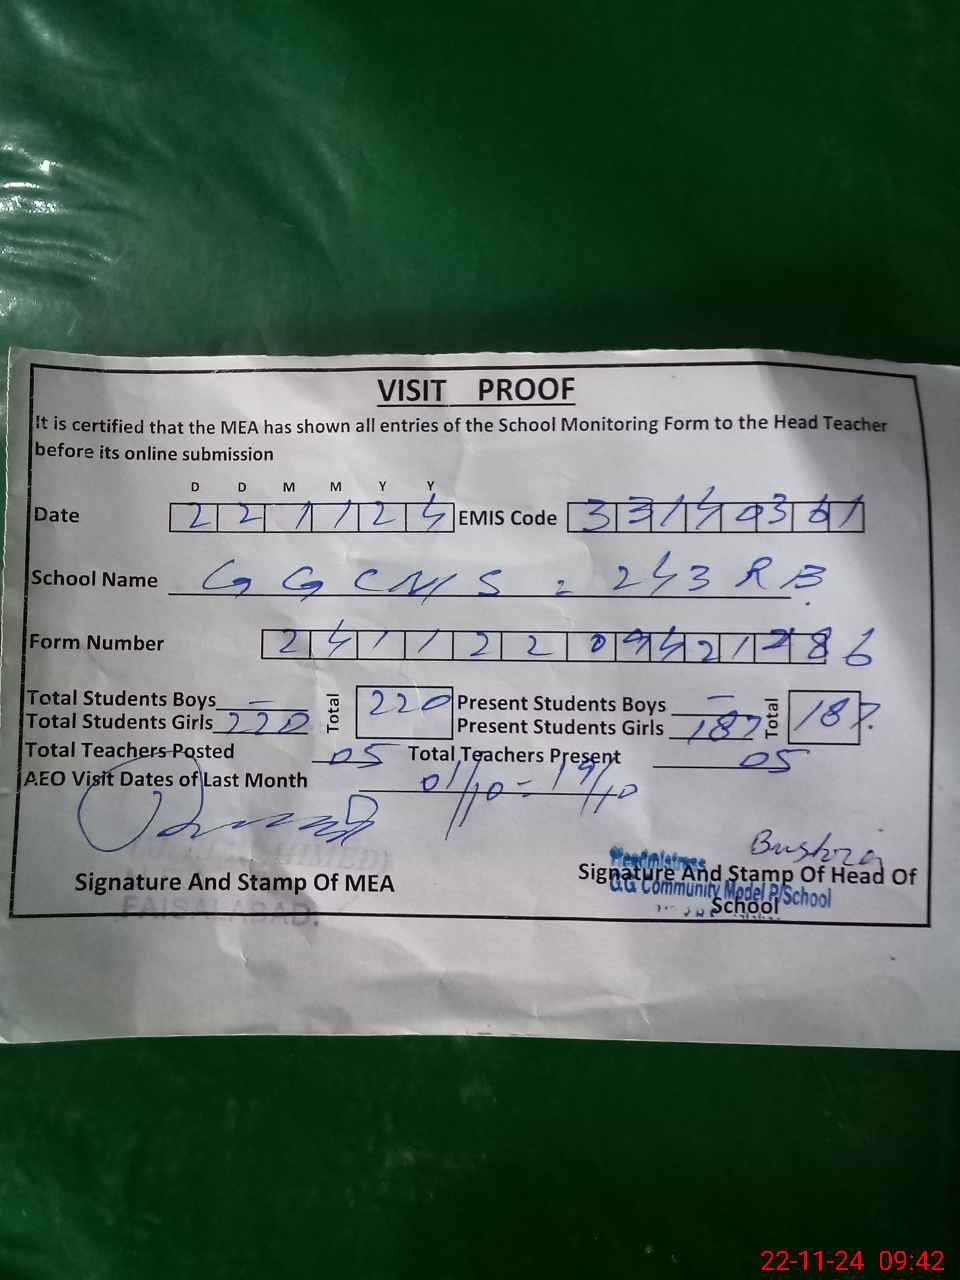 VISIT PROOF
It is certified that the MEA has shown all entries of the School Monitoring Form to the Head Teacher
before its online submission
D D M M Y Y
Date 2 2 1 1 2 4 EMIS Code 3 3 1 4 0 3 6 1
School Name GGCMS = 243 RB.
Form Number 2 4 1 1 2 2 0 9 4 2 1 2 8 6
Total Students Boys - Total 220 Present Students Boys - Total 187
Total Students Girls 220 Present Students Girls 187
Total Teachers Posted 05 Total Teachers Present 05
AEO Visit Dates of Last Month 01/10 - 19/10
Bushra
Signature And Stamp Of MEA
FAISALABAD.
Headmistress
Signature And Stamp Of Head Of
G.G Community Model P/School
School
22-11-24 09:42